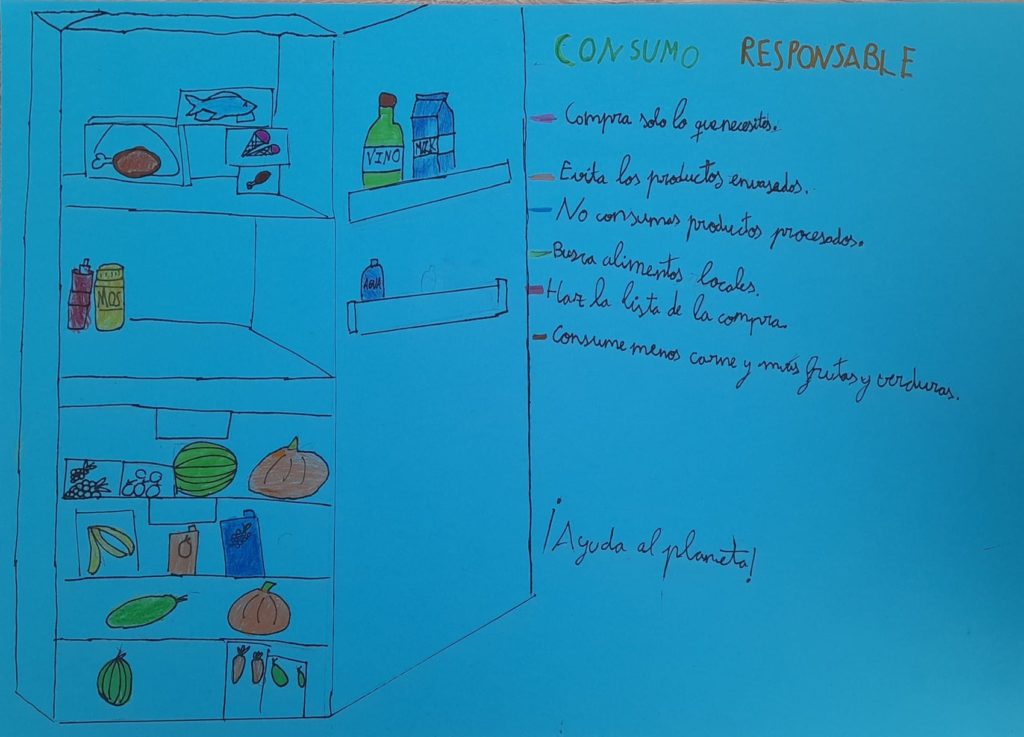 CONSUMO RESPONSABLE
Compra solo lo que necesites.
Evita los productos envasados.
No consumas productos procesados.
Busca alimentos locales.
Haz la lista de la compra.
Consume menos carne y más frutas y verduras.
¡Ayuda al planeta!
VINO
MILK
AGUA
MOS